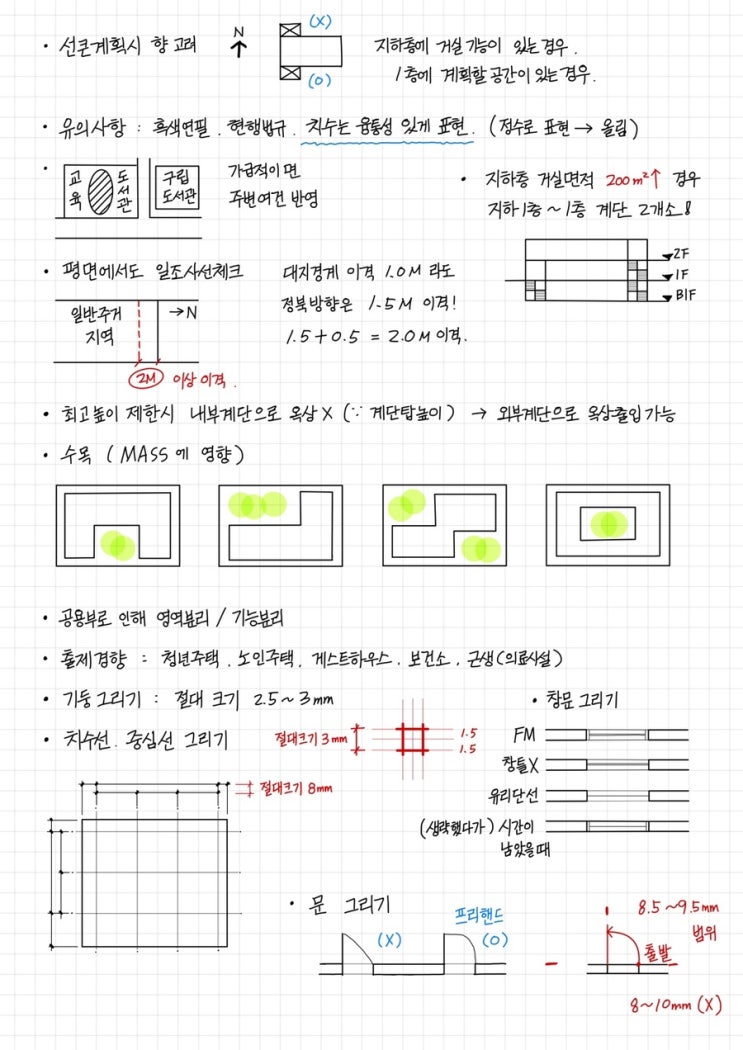 (X)
• 선큰계획시 향 고려
N
(O)
지하층에 거실 기능이 있는경우.
1층에 계획할 공간이 있는경우.
• 유의사항 : 흑색연필. 현행법규. 치수는 융통성 있게 표현. (정수로 표현 → 올림)
교육
도서관
구립
도서관
가급적이면
주변여건 반영
• 지하층 거실면적 200m²↑ 경우
지하1층 ~ 1층 계단 2개소!
2F
1F
B1F
• 평면에서도 일조사선체크
대지경계 이격 1.0M 라도
정북방향은 1.5M 이격!
1.5 + 0.5 = 2.0M 이격.
일반주거
지역
→N
2M 이상 이격.
• 최고높이 제한시 내부계단으로 옥상 X (∵ 계단탑높이) → 외부계단으로 옥상출입 가능
• 수목 (MASS에 영향)
• 공용부로 인해 영역분리 / 기능분리
• 출제경향 : 청년주택. 노인주택. 게스트하우스. 보건소. 근생(의료시설)
• 기둥그리기 : 절대 크기 2.5~3mm
• 치수선. 중심선 그리기
절대크기 3mm
1.5
1.5
절대크기 8mm
• 창문 그리기
FM
창틀X
유리단선
(생략했다가) 시간이
남았을때
• 문 그리기
(X)
프리핸드
(O)
8.5~9.5mm
범위
출발
8~10mm (X)